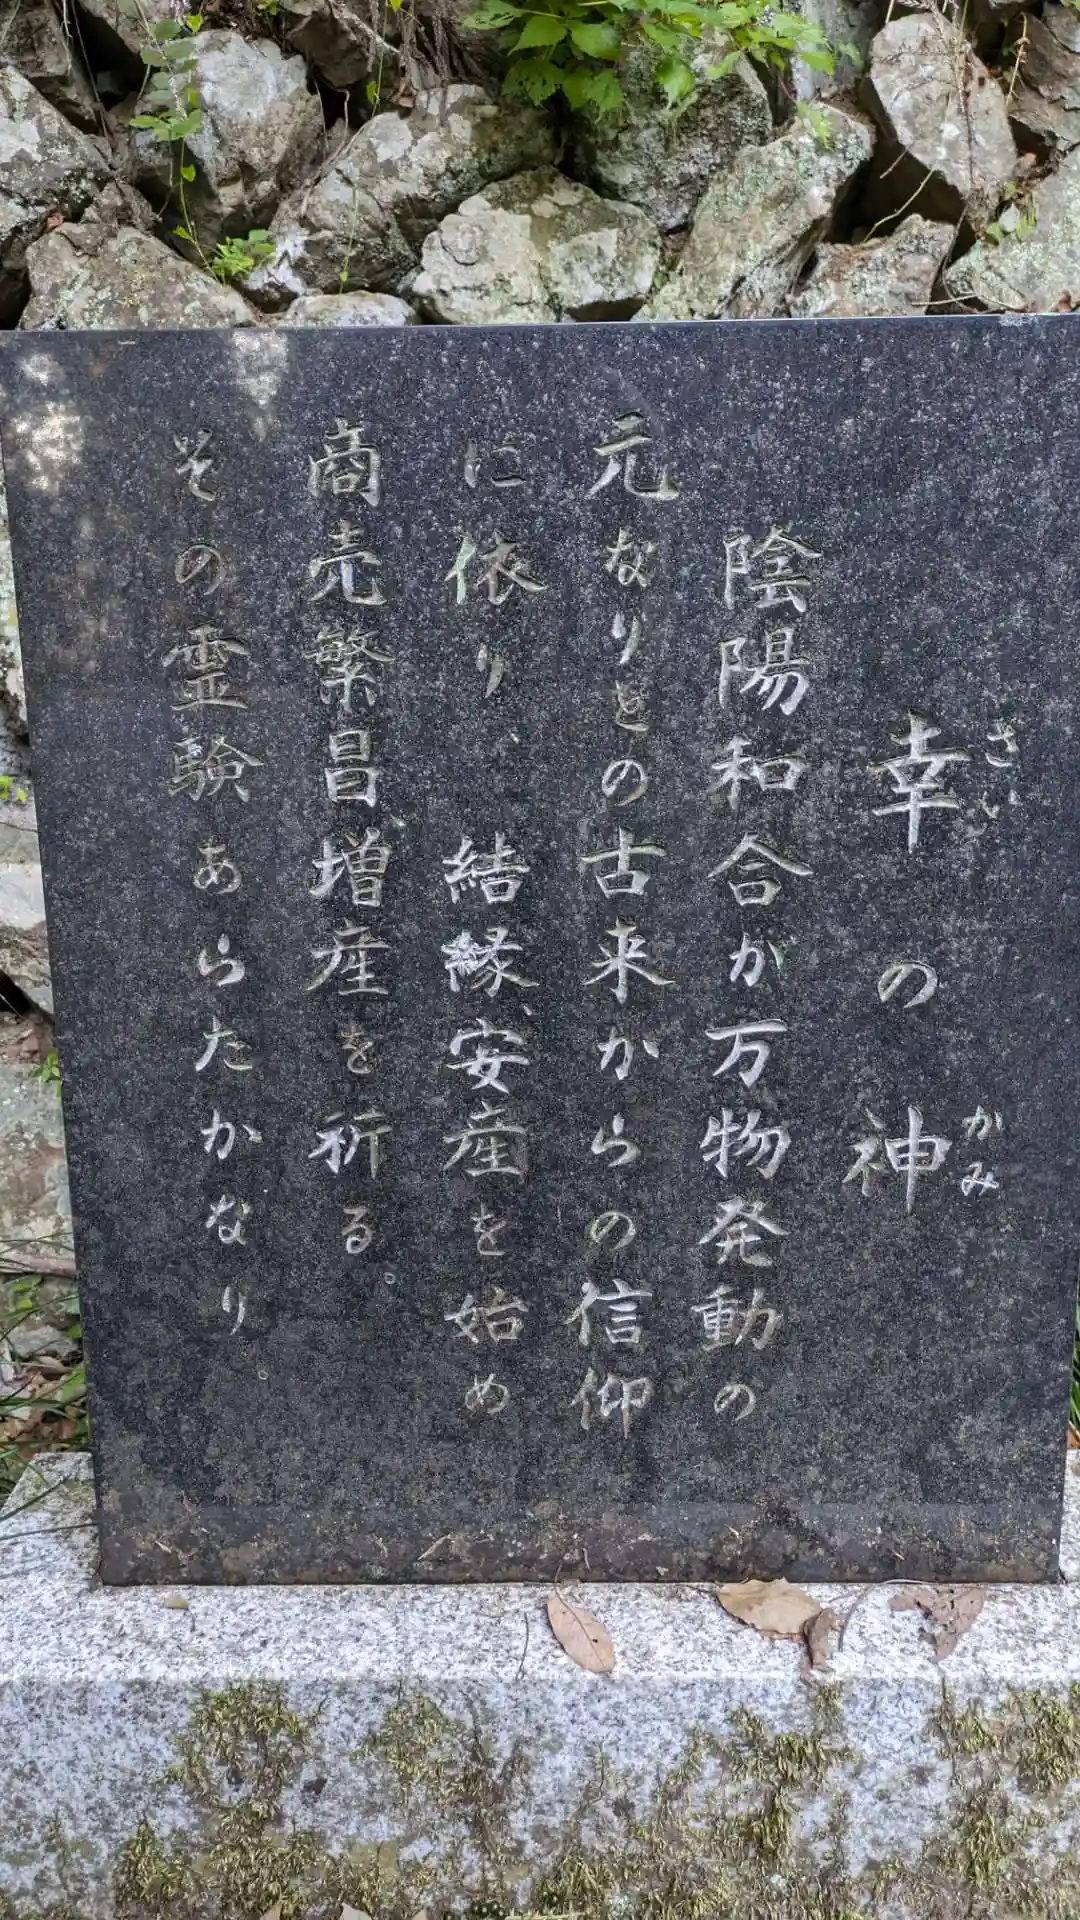 幸の神
さい かみ
陰陽和合が万物発動の
元なりとの古来からの信仰
に依り、結縁、安産を始め
商売繁昌、増産を祈る。
その霊験あらたかなり